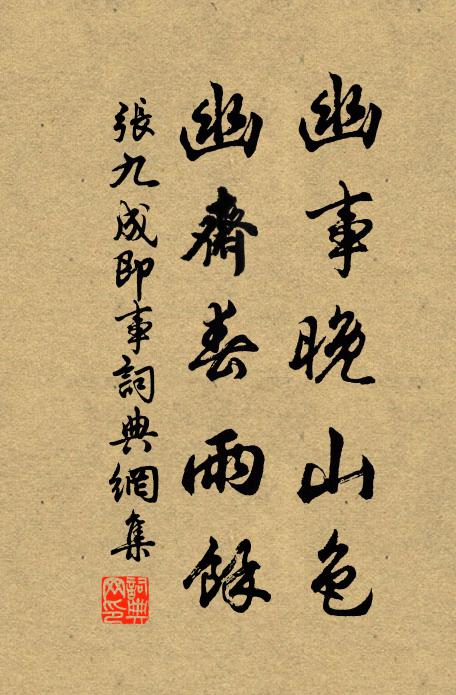 幽事晚山色
幽齋春雨餘
張九成即事詞典網集
詞典網印